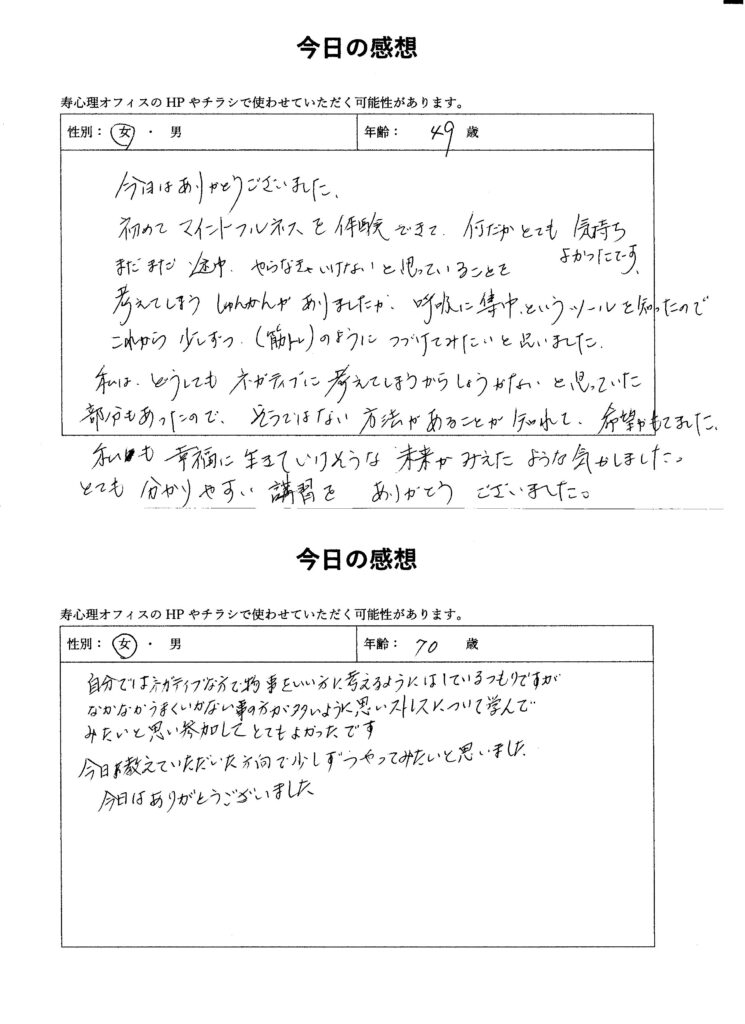 今日の感想
寿心理オフィスの HP やチラシで使わせていただく可能性があります。
性別： 女 ・ 男 年齢： 49 歳
今日はありがとうございました、
初めて マインドフルネス を 体験 できて、何だか とても 気持ち
よかったです。
まだまだ 途中、やらなきゃいけない と思っていることを
考えてしまう しゅんかんが ありましたが、呼吸に集中、というツールを知ったので
これから 少しずつ、(筋トレ)のように つづけてみたいと思いました。
私は、どうしても ネガティブに 考えてしまうからしょうがない と思っていた
部分もあったので、そうではない 方法があることが 知れて、希望がもてました、
私も 幸福に 生きていけそうな 未来が みえた ような 気がしました。
とても 分かりやすい 講習を ありがとう ございました。
今日の感想
寿心理オフィスの HP やチラシで使わせていただく可能性があります。
性別： 女 ・ 男 年齢： 70 歳
自分ではネガティブな方で物事をいい方に考えるようにはしているつもりですが
なかなかうまくいかない事の方が多いように思いストレスについて学んで
みたいと思い参加してとてもよかったです
今日教えていただいた方向で少しずつやってみたいと思いました
今日はありがとうございました